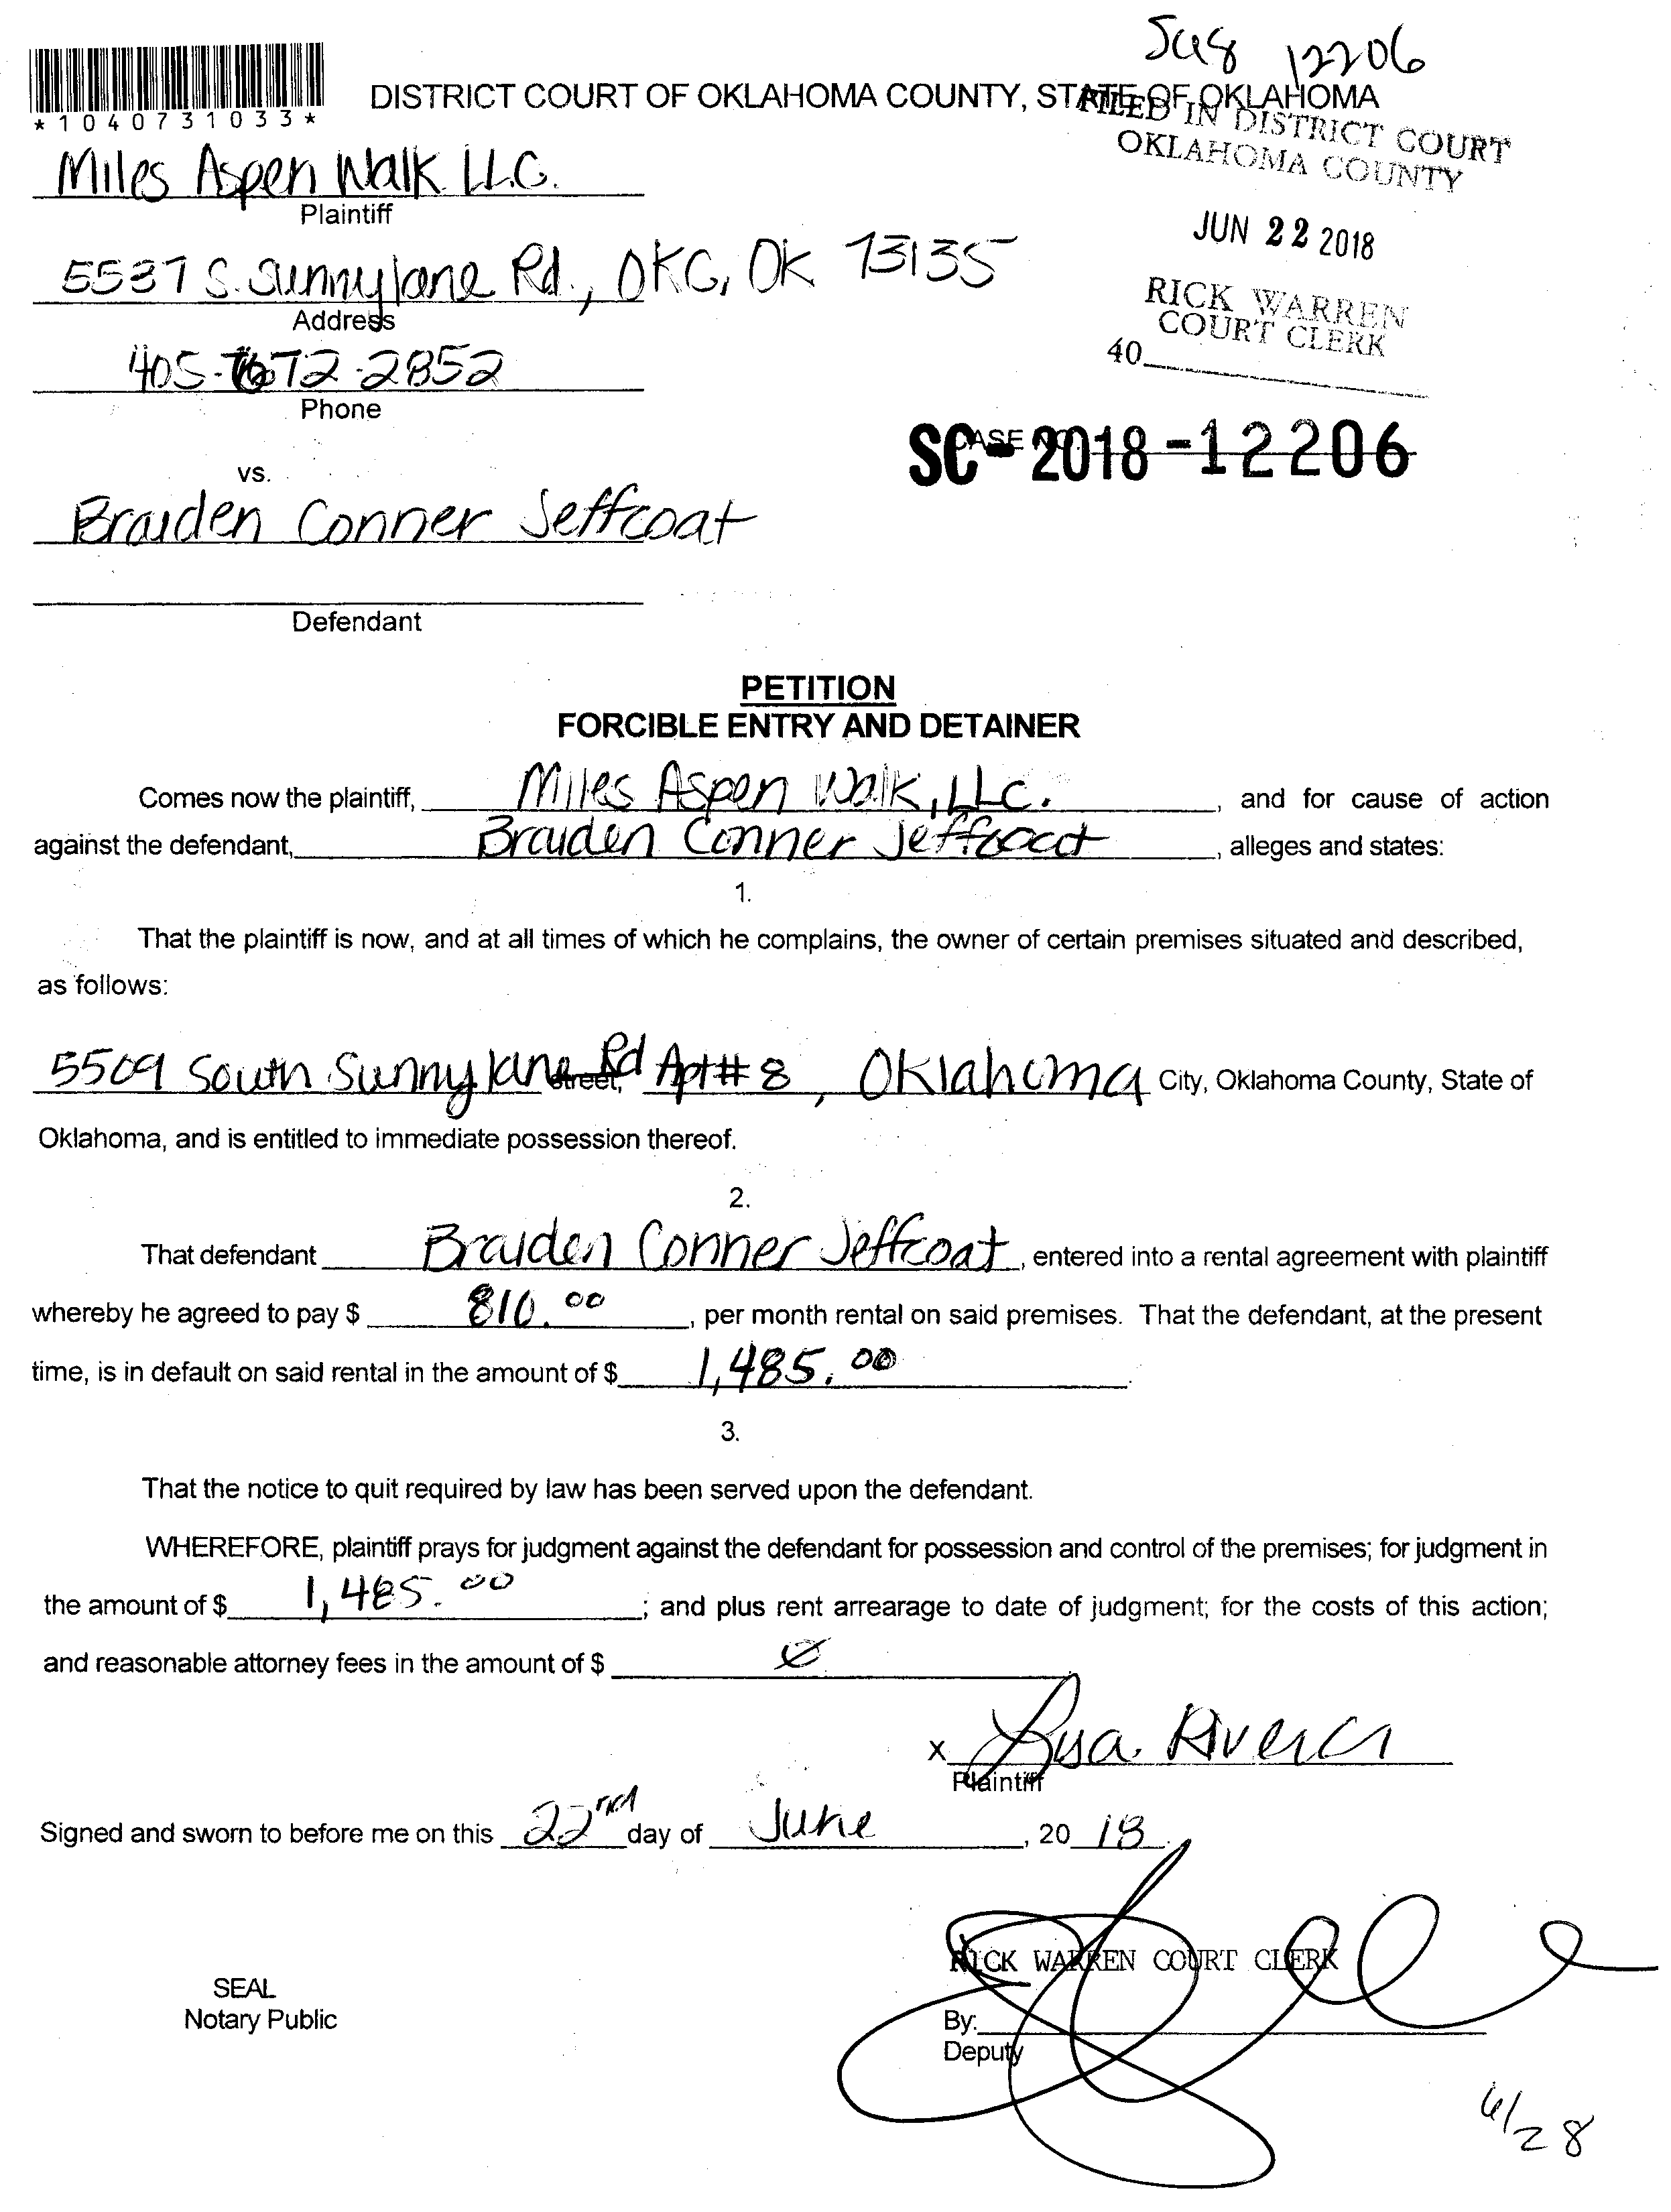 JU8 12206
*1040731033*
DISTRICT COURT OF OKLAHOMA COUNTY, STATE OF OKLAHOMA
FILED IN DISTRICT COURT
OKLAHOMA COUNTY
Miles Aspen Walk LLC.
Plaintiff
JUN 22 2018
5537 S. Sunnylane Rd., OKC, OK 73135
Address
RICK WARREN
COURT CLERK
40
405-672-2852
Phone
CASE NO.
SC-2018-12206
vs.
Braiden Conner Jeffcoat
Defendant
PETITION
FORCIBLE ENTRY AND DETAINER
Comes now the plaintiff, Miles Aspen Walk, LLC. , and for cause of action
against the defendant, Braiden Conner Jeffcoat , alleges and states:
1.
That the plaintiff is now, and at all times of which he complains, the owner of certain premises situated and described,
as follows:
5509 South Sunnylane Rd Street, Apt# 8 , Oklahoma City, Oklahoma County, State of
Oklahoma, and is entitled to immediate possession thereof.
2.
That defendant Braiden Conner Jeffcoat , entered into a rental agreement with plaintiff
whereby he agreed to pay $ 810.00 , per month rental on said premises. That the defendant, at the present
time, is in default on said rental in the amount of $ 1,485.00 .
3.
That the notice to quit required by law has been served upon the defendant.
WHEREFORE, plaintiff prays for judgment against the defendant for possession and control of the premises; for judgment in
the amount of $ 1,485.00 ; and plus rent arrearage to date of judgment; for the costs of this action;
and reasonable attorney fees in the amount of $ Ø
x Lysa Rivera
Plaintiff
Signed and sworn to before me on this 22nd day of June , 20 18 .
RICK WARREN COURT CLERK
SEAL
Notary Public
By:
Deputy
6/28